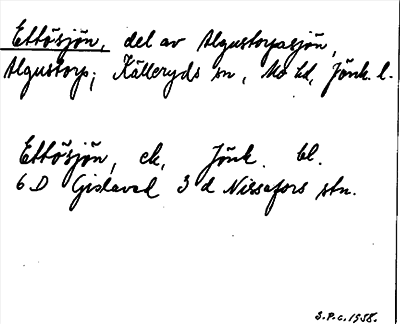 Ettösjön, del av Algustorpasjön,
Algustorp, Källeryds sn, Mo hd, Jönk. l.
Ettösjön, ek, Jönk. bl.
6 D Gislaved 3 d Nissafors stn.
S.P.c. 1958.